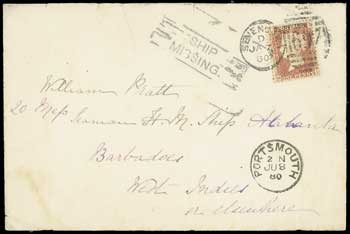 SHIP
MISSING.
SEVENO
D
JA
80
William Pratt
20 Mess Seaman H. M. Ship Atalanta
Barbadoes
West Indies
or elsewhere
PORTSMOUTH
2 N
JU 8
80